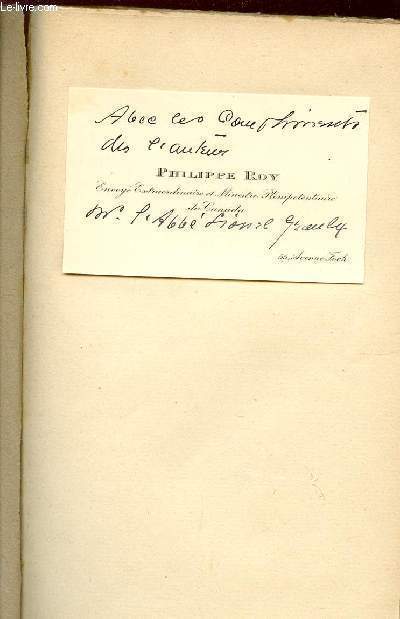 Le-livre.com
Avec les Compliments
de l'auteur
PHILIPPE ROY
Envoyé Extraordinaire et Ministre Plénipotentiaire
du Canada
Mr. l'Abbé Lionel
Avenue Foch